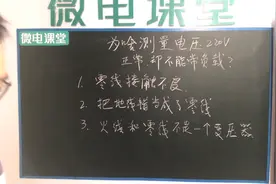 微电课堂
微电课堂
为啥测量电压220V
正常却不能带负载?
1. 零线接触不良
2. 把地线错当成了零线
3. 火线和零线不是一个变压器